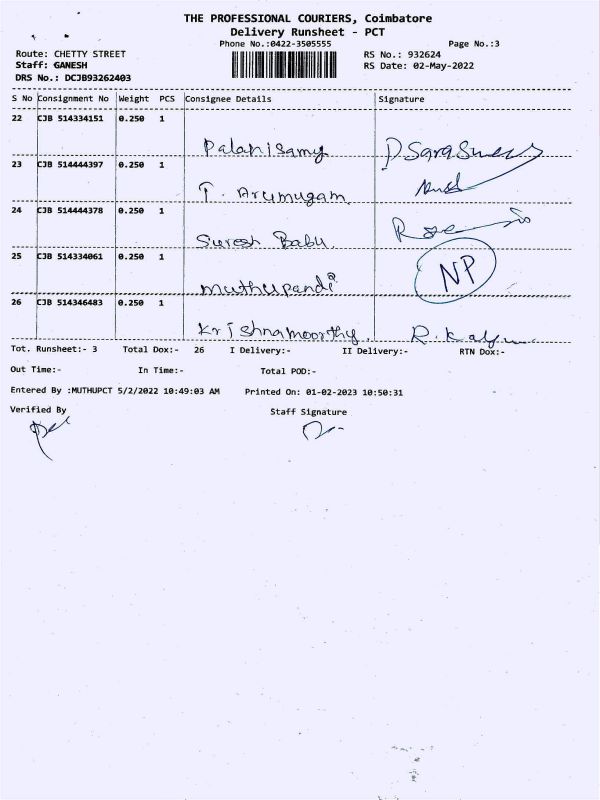 THE PROFESSIONAL COURIERS, Coimbatore
Delivery Runsheet - PCT
Phone No.:0422-3505555 Page No.:3
Route: CHETTY STREET RS No.: 932624
Staff: GANESH RS Date: 02-May-2022
DRS No.: DCJB93262403
S No Consignment No Weight PCS Consignee Details Signature
22 CJB 514334151 0.250 1
Palanisamy
23 CJB 514444397 0.250 1
T. Arumugam
24 CJB 514444378 0.250 1
Suresh Babu
25 CJB 514334061 0.250 1
Muthupandi NP
26 CJB 514346483 0.250 1
Krishnamoorthy.
Tot. Runsheet:- 3 Total Dox:- 26 I Delivery:- II Delivery:- RTN Dox:-
Out Time:- In Time:- Total POD:-
Entered By :MUTHUPCT 5/2/2022 10:49:03 AM Printed On: 01-02-2023 10:50:31
Verified By Staff Signature